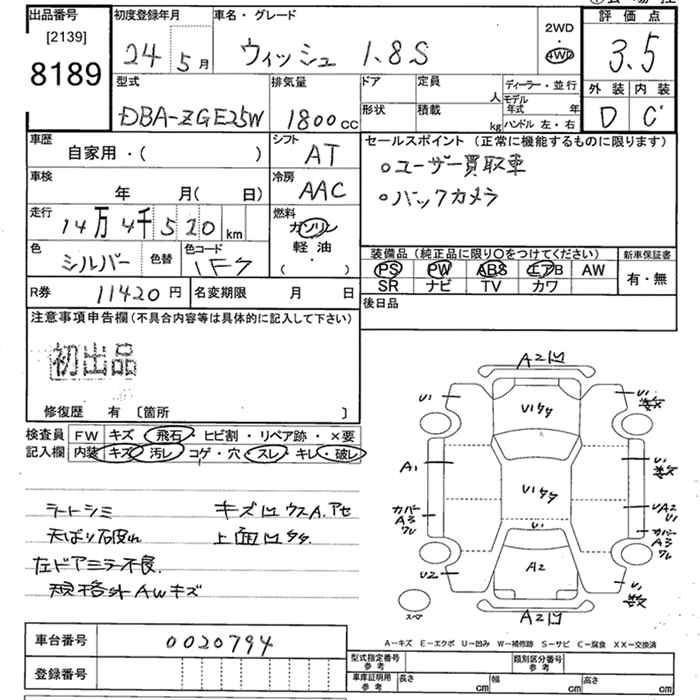 出品番号 初度登録年月 車名・グレード 評価点
[2139] 24 5月 ウィッシュ 1.8S 2WD・4WD 3.5
8189
型式 排気量 ドア 定員 人 ディーラー・並行 外装 内装
DBA-ZGE25W 1800cc 形状 積載 kg モデル年式 年 ハンドル 左・右 D C
車歴 シフト セールスポイント (正常に機能するものに限ります)
自家用・( ) AT ○ユーザー買取車
車検 冷房 ○バックカメラ
年 月(日) AAC
走行 燃料
14万4千520km ガソリン
色 色替 色コード 軽油 装備品 (純正品に限り○をつけてください) 新車保証書
シルバー 1F7 ・( ) PS PW ABS エアB AW 有・無
SR ナビ TV カワ
R券 11420円 名変期限 月 日 後日品
注意事項申告欄 (不具合内容等は具体的に記入して下さい)
初出品
修復歴 有 〔箇所 〕
検査員 FW キズ 飛石・ヒビ割・リペア跡・×要
記入欄 内装 キズ 汚レ コゲ・穴 スレ・キレ・破レ
シートシミ キズ凹ウスA.アセ
天ばり破れ 上面凹タタ.
左ドアミラー不良.
規格外AWキズ
A2凹
U1 U1タタ U1
A1 U1タタ U1
カバー A3 ワレ U1 UA2 U1
カバー A3 ワレ
U2 A2 U1
スペア A2凹
A-キズ E-エクボ U-凹み W-補修跡 S-サビ C-腐食 XX-交換済
車台番号 0020794
登録番号
型式指定番号 参考 類別区分番号 参考
車庫証明用 参考 長さ cm 幅 cm 高さ cm